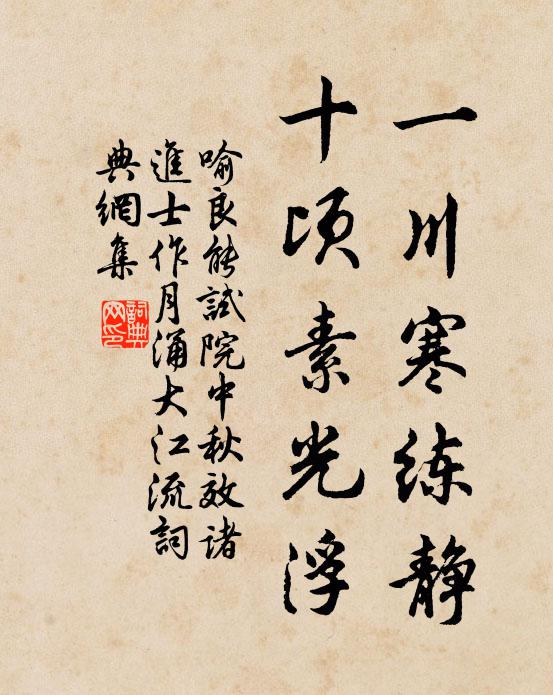 一川寒练静
十顷素光浮
喻良能試院中秋效诸
進士作月涌大江流詞
典網集
詞典网印